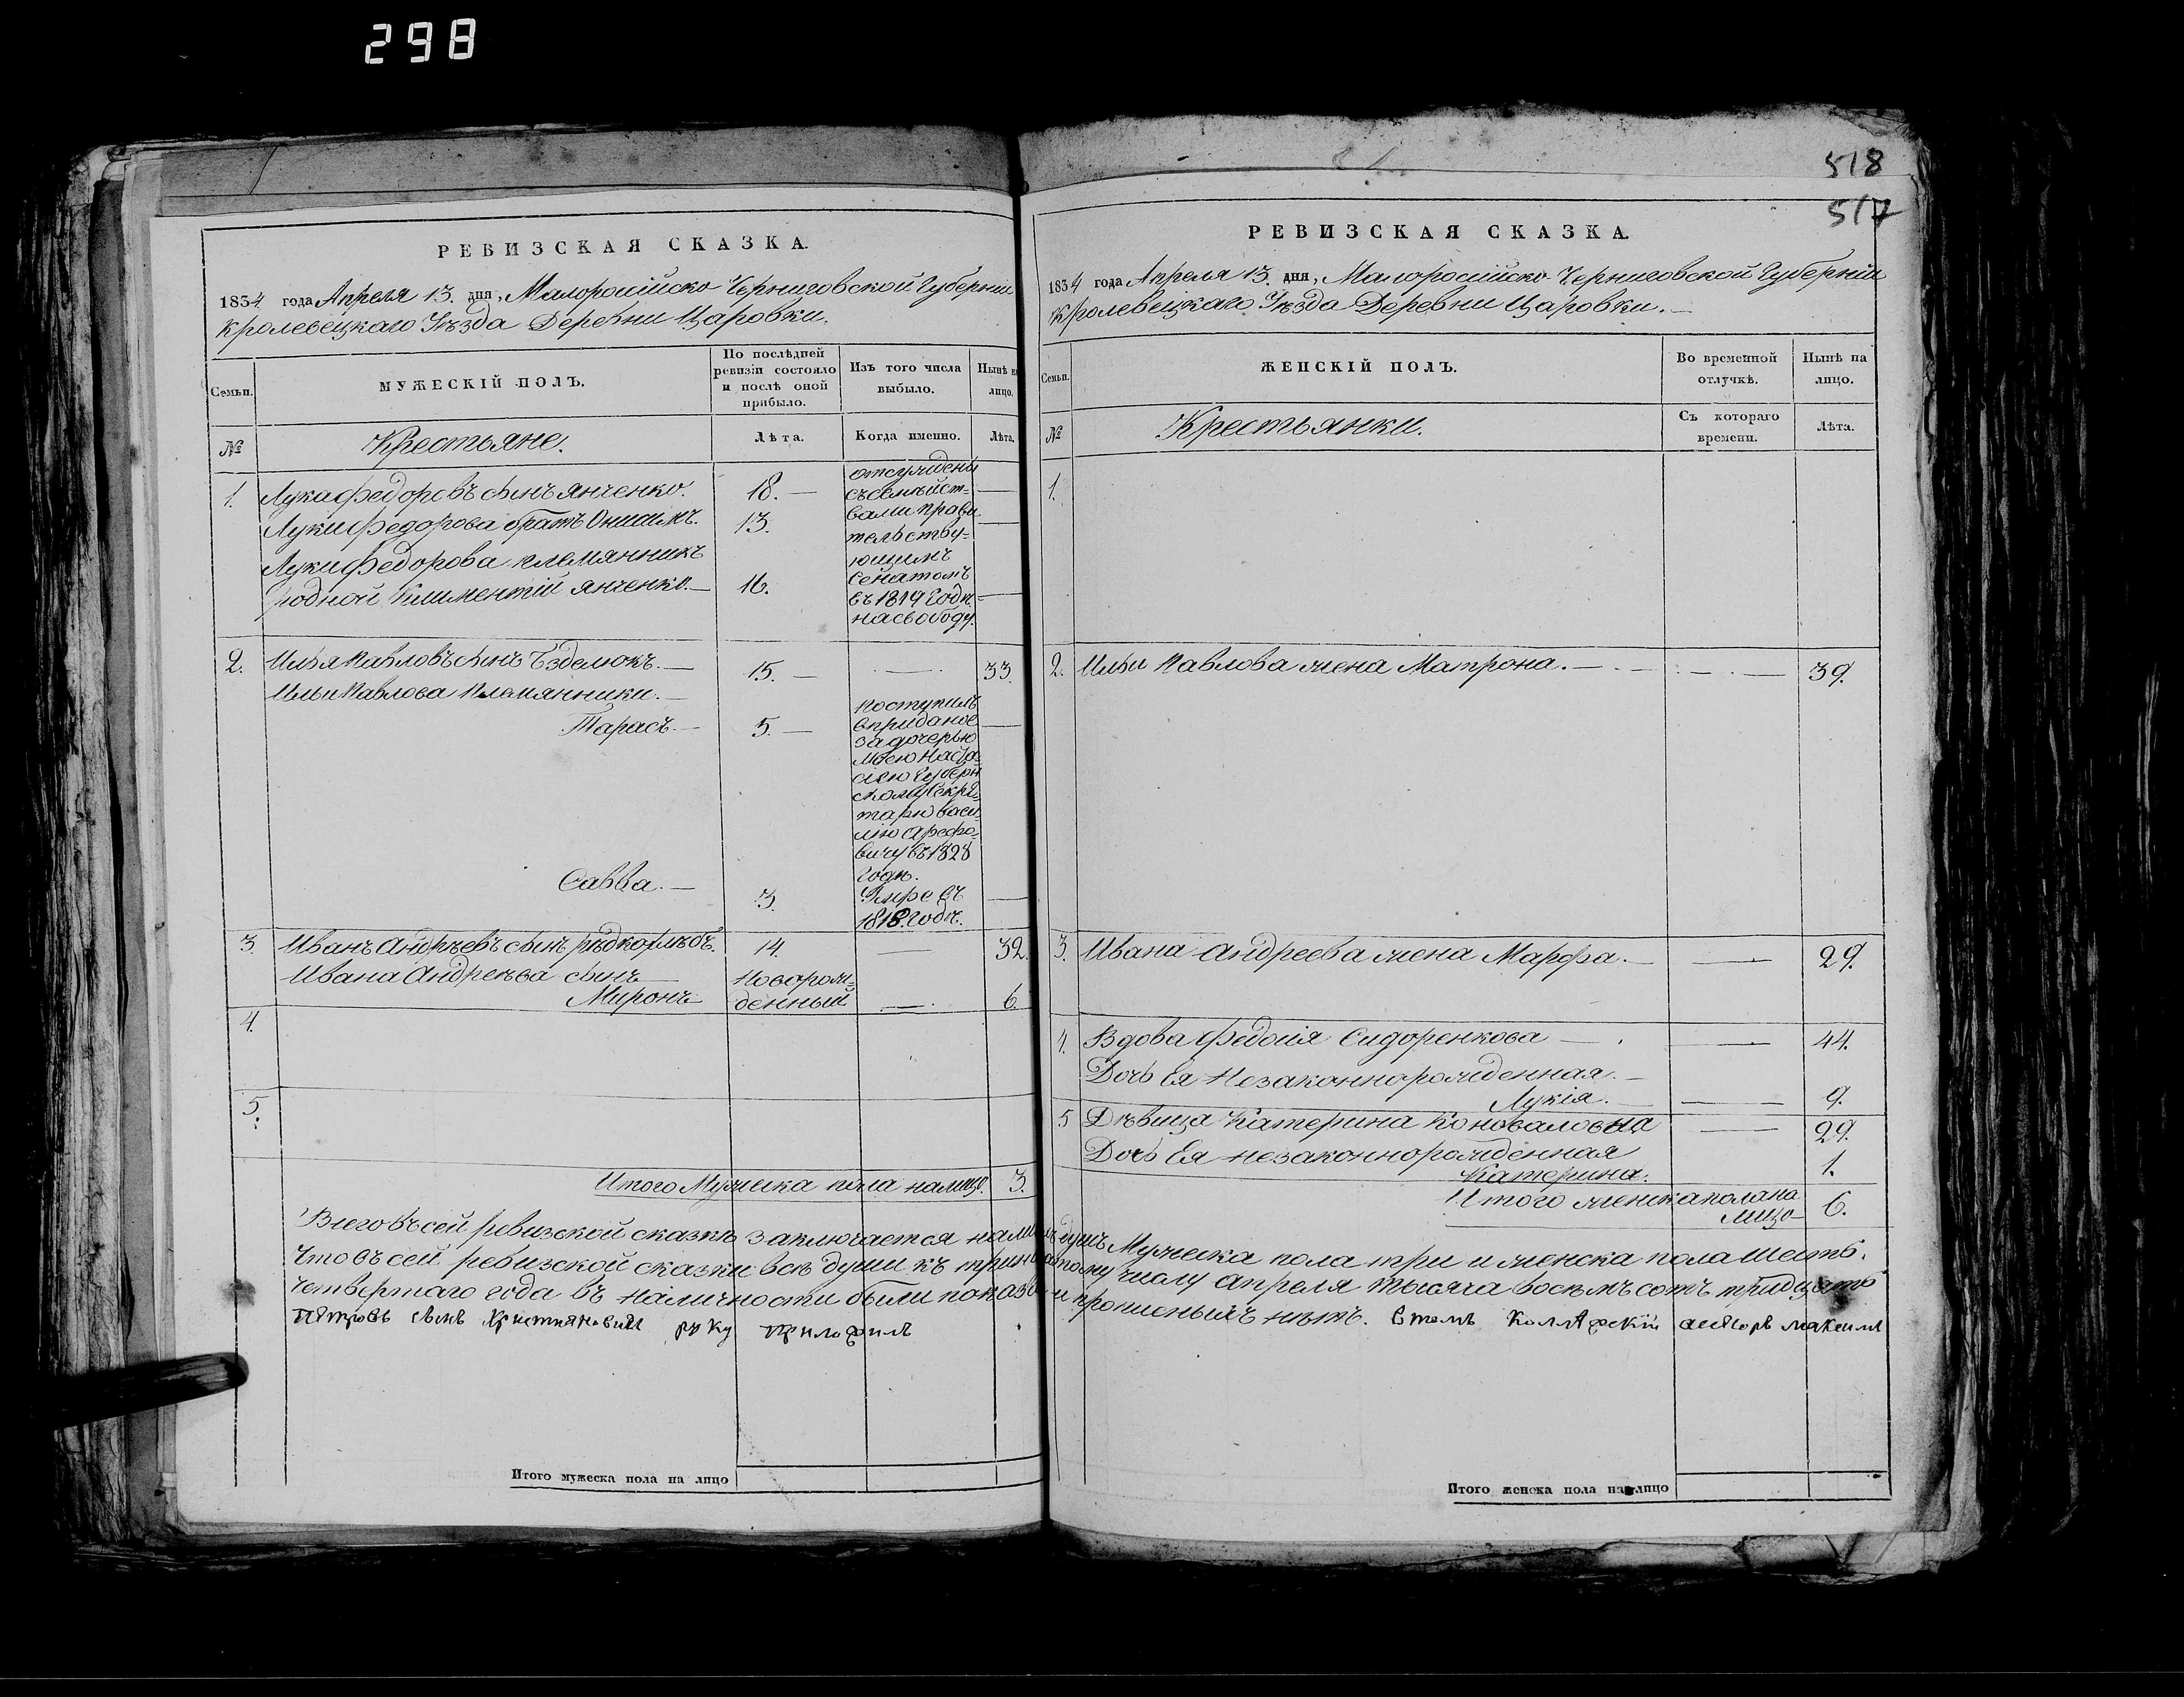 298
518
517
РЕВИЗСКАЯ СКАЗКА.
1834 года Апреля 13. дня, Малоросійско Черниговской Губерніи
Кролевецкаго Уѣзда Деревни Царовки.
Семьи.
МУЖЕСКІЙ ПОЛЪ.
По послѣдней ревизіи состояло и послѣ оной прибыло.
Изъ того числа выбыло.
Нынѣ на лицо.
№
Крестьяне.
Лѣта.
Когда именно.
Лѣта.
1. Лука Федоровъ сынъ Янченко. 18. —
Луки Федорова братъ Онисимъ. 13.
Луки Федорова племянникъ
родной Климентій Янченко. — 16.
отсуждены
съ семѣйст=
вами прави
тельству=
ющимъ
Сенатомъ
въ 1819 Годѣ.
на свободу.
2. Илья Павловъ сынъ Бзделюкъ. — 15. — — 33.
Ильи Павлова Племянники. —
Тарасъ. — 5. —
поступилъ
в приданое
за дочерью
моею Наста=
сіею Губерн
скому Секре=
тарю Васи=
лію Арефо=
вичу въ 1828
Годѣ.
Савва. — 3.
Умре въ
1818. Годѣ.
3. Иванъ Андрѣевъ сынъ Рѣдкохлѣбъ. 14. — 32.
Ивана Андрѣева сынъ —
Миронъ — Новорож=
денный — 6.
4.
5.
Итого Мужеска пола налицо. 3.
РЕВИЗСКАЯ СКАЗКА.
1834 года Апреля 13. дня, Малоросійско Черниговской Губерніи
Кролевецкаго Уѣзда Деревни Царовки. —
Семьи.
ЖЕНСКІЙ ПОЛЪ.
Во временной отлучкѣ.
Нынѣ на лицо.
№
Крестьянки.
Съ котораго времени.
Лѣта.
1.
2. Ильи Павлова жена Матрона. — 39.
3. Ивана Андреева жена Марфа. — 29.
4. Вдова Федосія Сидоренкова — 44.
Дочь Ея Незаконнорожденная. —
Лукія. — 9.
5 Дѣвица Катерина Коноваловна — 29.
Дочь Ея незаконнорожденная
Катерина. 1.
Итого женска пола на
лицо — 6.
Всего въ сей ревизской сказкѣ заключается налицо душъ Мужеска пола три и женска пола шесть.
Что въ сей ревизской сказки всѣ души къ тринадцатому числу апреля тысяча восемъ сотъ тридцать
четвертаго года въ наличности были показаны и прописныхъ нѣтъ. В томъ коллѣжскій асесоръ максимъ
Пѣтровъ сынъ Християновичъ руку приложилъ
Итого мужеска пола на лицо
Итого женска пола на лицо